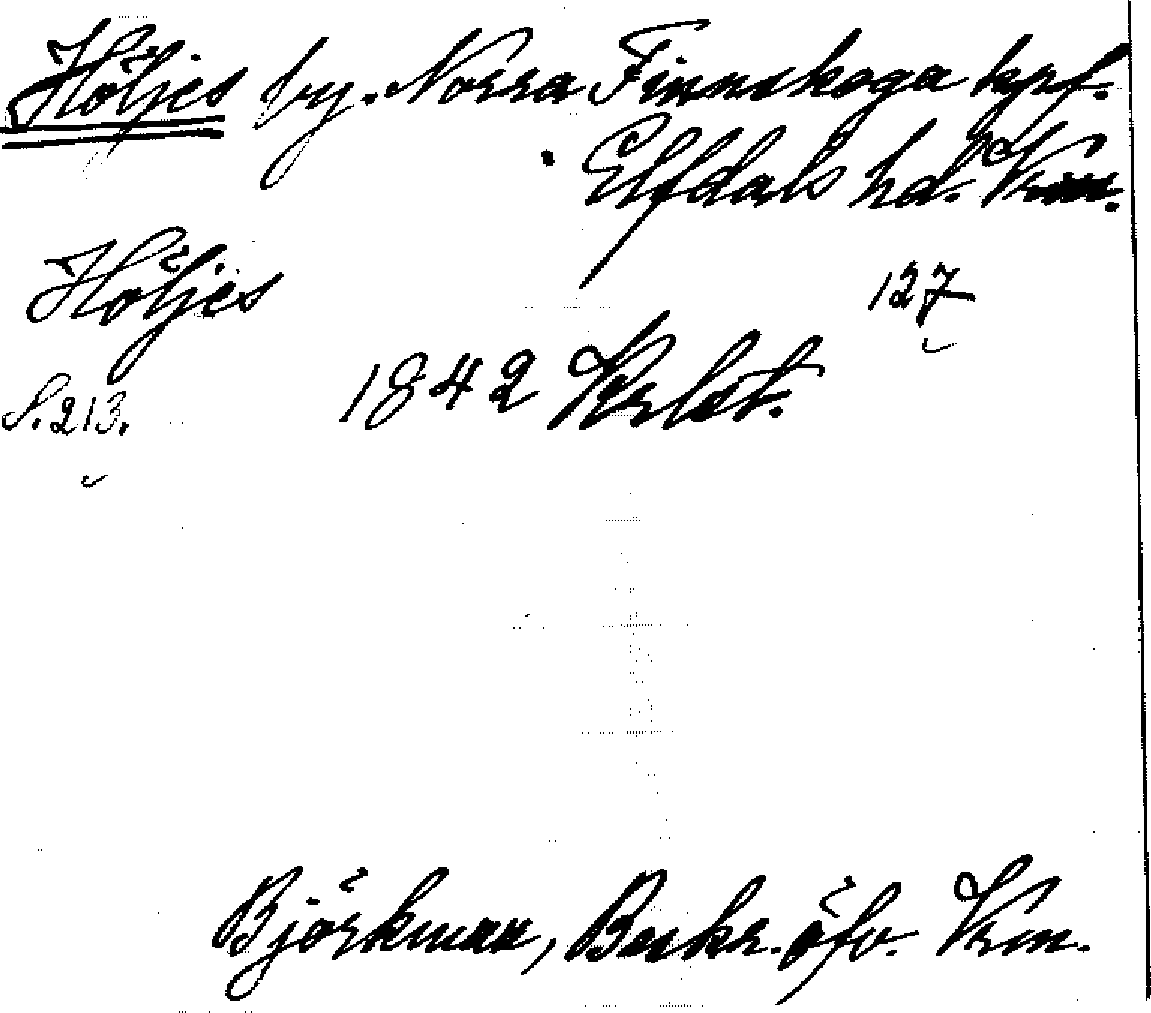 Höljes by. Norra Finnskoga kpf.
Elfdals hd. Vrm.
Höljes
127
1842 Krlst.
S. 213.
Björkman, Beskr. öfv. Vrm.